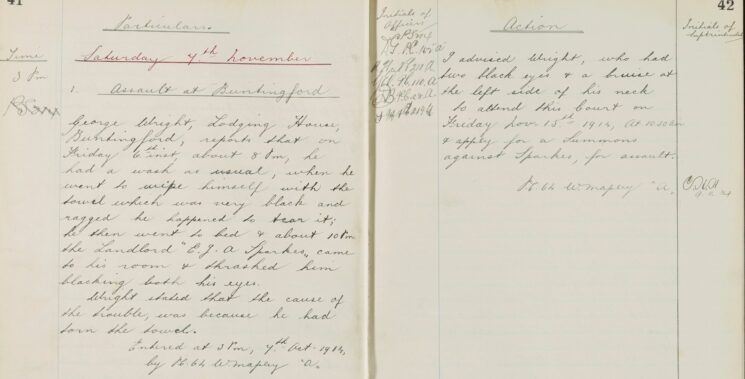 41
Particulars.
Time
Saturday 7.th November
3 Pm
1. Assault at Buntingford
George Wright, Lodging House,
Buntingford, reports that on
Friday 6th inst, about 8 Pm, he
had a wash as usual, when he
went to wipe himself with the
towel which was very black and
ragged he happened to tear it;
he then went to bed & about 10 Pm
the Landlord "E. J. A Sparkes" came
to his room & thrashed him
blacking both his eyes.
Wright stated that the cause of
the trouble, was because he had
torn the towel.
Entered at 3 Pm, 7th Oct. 1914,
by "A.
42
Initials of
Officers
Action
Initials of
Superintendent
I advised Wright, who had
two black eyes & a bruise at
the left side of his neck
to attend this Court on
Friday Nov. 13th 1914, at 10.30 am
& apply for a Summons
against Sparkes, for assault.
"A.